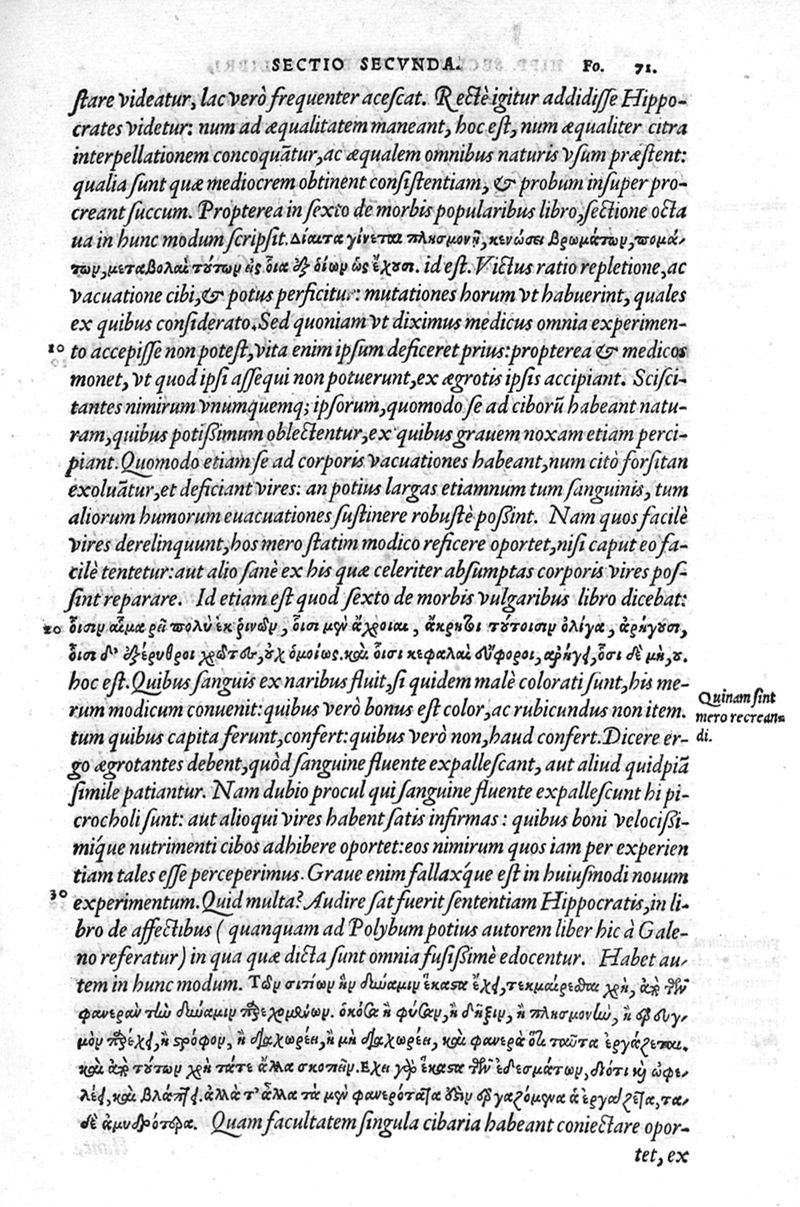 SECTIO SECVNDA. Fo. 71.
stare videatur, lac verò frequenter acescat. Rectè igitur addidisse Hippo-
crates videtur: num ad æqualitatem maneant, hoc est, num æqualiter citra
interpellationem concoquātur, ac æqualem omnibus naturis vsum præstent:
qualia sunt quæ mediocrem obtinent consistentiam, & probum insuper pro-
creant succum. Propterea in sexto de morbis popularibus libro, sectione octa
ua in hunc modum scripsit. Δίαιτα γίνεται πλησμονῇ, κενώσει βρωμάτων, πομά-
των, μεταβολαὶ τούτων ἐς οἷα ἐξ οἵων ὡς ἔχουσι. id est. Victus ratio repletione, ac
vacuatione cibi, & potus perficitur: mutationes horum vt habuerint, quales
ex quibus considerato. Sed quoniam vt diximus medicus omnia experimen-
10 to accepisse non potest, vita enim ipsum deficeret prius: propterea & medicos
monet, vt quod ipsi assequi non potuerunt, ex ægrotis ipsis accipiant. Scisci-
tantes nimirum vnumquemq; ipsorum, quomodo se ad ciborū habeant natu-
ram, quibus potißimum oblectentur, ex quibus grauem noxam etiam perci-
piant. Quomodo etiam se ad corporis vacuationes habeant, num citò forsitan
exoluātur, et deficiant vires: an potius largas etiamnum tum sanguinis, tum
aliorum humorum euacuationes sustinere robustè poßint. Nam quos facilè
vires derelinquunt, hos mero statim modico reficere oportet, nisi caput eo fa-
cilè tentetur: aut alio sanè ex his quæ celeriter absumptas corporis vires pos-
sint reparare. Id etiam est quod sexto de morbis vulgaribus libro dicebat:
20 οἷσιν αἷμα ῥεῖ πολὺ ἐκ ῥινῶν, οἷσι μὲν ἄχροιαι, ἄκρητοι τούτοισιν ὀλίγα, ἀρήγουσι,
οἷσι δ' ἐξέρυθροι οὐχ ὁμοίως. καὶ οἷσι κεφαλαὶ εὔφοροι, ἀρήγει, ὅσι δὲ μὴ, οὐ.
hoc est. Quibus sanguis ex naribus fluit, si quidem malè colorati sunt, his me-
rum modicum conuenit: quibus verò bonus est color, ac rubicundus non item.
tum quibus capita ferunt, confert: quibus verò non, haud confert. Dicere er-
go ægrotantes debent, quòd sanguine fluente expallescant, aut aliud quidpiā
simile patiantur. Nam dubio procul qui sanguine fluente expallescunt hi pi-
crocholi sunt: aut alioqui vires habent satis infirmas: quibus boni velocißi-
mi´que nutrimenti cibos adhibere oportet: eos nimirum quos iam per experien
tiam tales esse perceperimus. Graue enim fallax´que est in huiusmodi nouum
30 experimentum. Quid multa? Audire sat fuerit sententiam Hippocratis, in li-
bro de affectibus ( quanquam ad Polybum potius autorem liber hic à Gale-
no referatur) in qua quæ dicta sunt omnia fusißimè edocentur. Habet au-
tem in hunc modum. Τῶν σιτίων ἣν δύναμιν ἕκαστα ἔχει, τεκμαίρεσθαι χρὴ, ἀπὸ τῶν
φανερὰν τὴν δύναμιν παρεχομένων. ὁκόσα ἢ φῦσαν, ἢ δῆξιν, ἢ πλησμονὴν, ἢ ἐρευγ-
μὸν παρέχει, ἢ στρόφον, ἢ διαχωρέει, ἢ μὴ διαχωρέει, καὶ φανερὰ ὅτι ταῦτα ἐργάζεται.
καὶ ἀπὸ τούτων χρὴ τἄτε ἄλλα σκοπεῖν. Ἔχει γὰρ ἕκαστα τῶν ἐδεσμάτων, διότι καὶ ὠφε-
λέει, καὶ βλάπτει. ἀλλὰ τ' ἄλλα τὰ μὲν φανερότατα ἐργαζόμενα ἃ ἐργάζεται, τὰ
δὲ ἀμυδρότερα. Quam facultatem singula cibaria habeant coniectare opor-
tet, ex
Quinam sint
mero recrean-
di.